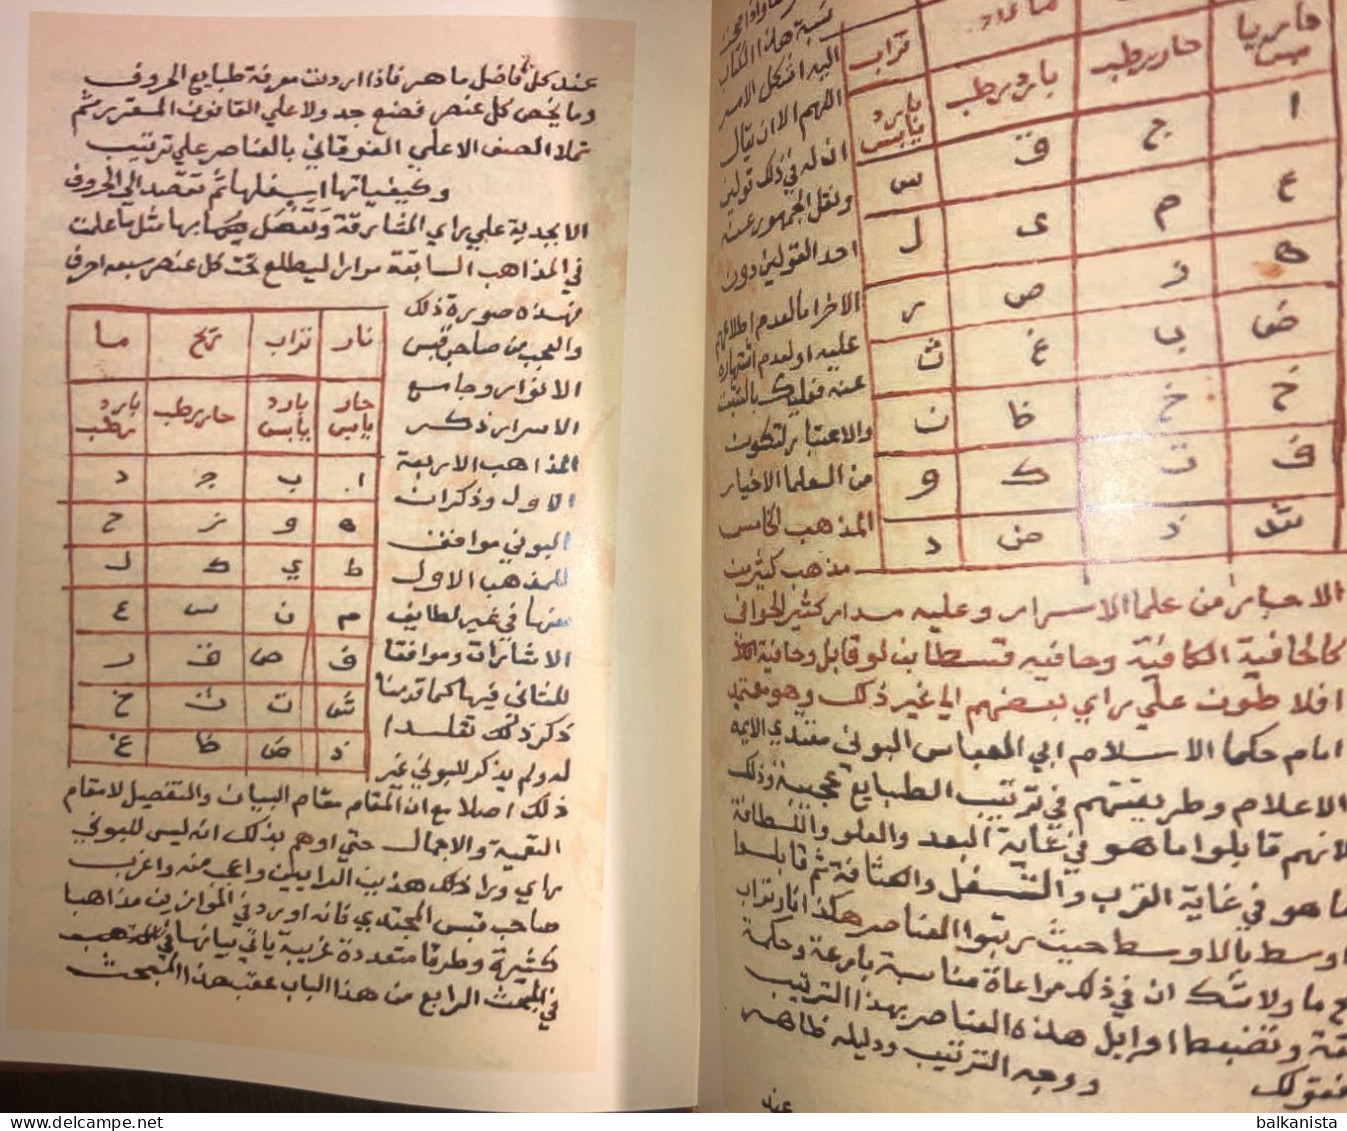 عند كل فاضل ماهر فاذا اردت معرفة طبايع الحروف
وما يخص كل عنصر فضع جدولا علي القانون المقرر ثم
تملا الصف الاعلي الفوقاني بالعناصر علي ترتيب
وكيفياتها اسفلها ثم تقصد الي الحروف
الابجدية علي راي المشارقة وتفعل بها مثل ما علت
في المذاهب السابقة مرارا ليطلع تحت كل عنصر سبعه احرف
فهذه صورة ذلك
والعجب من صاحب قبس
الانوار وجامع
الاسرار ذكر
المذاهب الاربعة
الاول وذكر ان
البوني موافق
للمذهب الاول
منها في غير لطايف
الاشارات وموافقا
للثاني فيها كما قدمنا
ذكر ذلك تقلسدا
له ولم يذكر للبوني غير
نار تراب ريح ما
حار يابس بارد يابس حار رطب بارد رطب
ا ب ج د
ه و ز ح
ط ي ك ل
م ن س ع
ف ص ق ر
ش ت ث خ
ذ ض ظ غ
ذلك اصلا مع ان المقام مقام البيان والتفصيل لا مقام
التعمية والاجمال حتي اوهم بذلك انه ليس للبوني
راي ورا ذلك هذين الرايين واعجب منه واغرب
صاحب قبس المجتدي فانه اورد في الموازين مذاهبا
كثيرة وطرقا متعددة غريبة ياتي بيانها في
في المبحث الرابع من هذا الباب عقب هذا المبحث
نسبة هذا الكتاب
اليه اشكل الامر
اللهم الا ان يقال
ان له في ذلك قولين
ونقل الجمهور عنه
احد القولين دون
الاخر اما لعدم اطلاعهم
عليه او لعدم اشتهاره
عنه فعليك بالتثبت
والاعتبار لتكون
من العلما الاخيار
المذهب الخامس
مذهب كثير من
حار يابس حار رطب بارد رطب تراب
بارد يابس
ا ج ق س
ع م ى ل
ه ز ص ر
ض ب غ ث
ح خ ظ ن
ف ت ك و
ش ذ ض د
الاحبار من علما الاسرار وعليه مدار كثير الخوافي
كالخافية الكافية وخافيه قسطا بن لوقا بل وخافية
افلاطون علي راي بعضهم الي غير ذلك وهو معتمد
امام حكما الاسلام ابي العباس البوني مقتدي الايمه
الاعلام وطريقتهم في ترتيب الطبايع عجيبة وذلك
لانهم قابلوا ما هو في غاية البعد والعلو واللطافة
بما هو في غاية القرب والتسفل والكثافة ثم قابلوا
اوسط بالاوسط حيث رتبوا العناصر هكذا نار تراب
ما ولا شك ان في ذلك مراعاة مناسبة بارعة وحكمة
اوايل هذه العناصر بهذا الترتيب
فنقولك ووجه الترتيب ودليله ظاهر
عند
balkanista